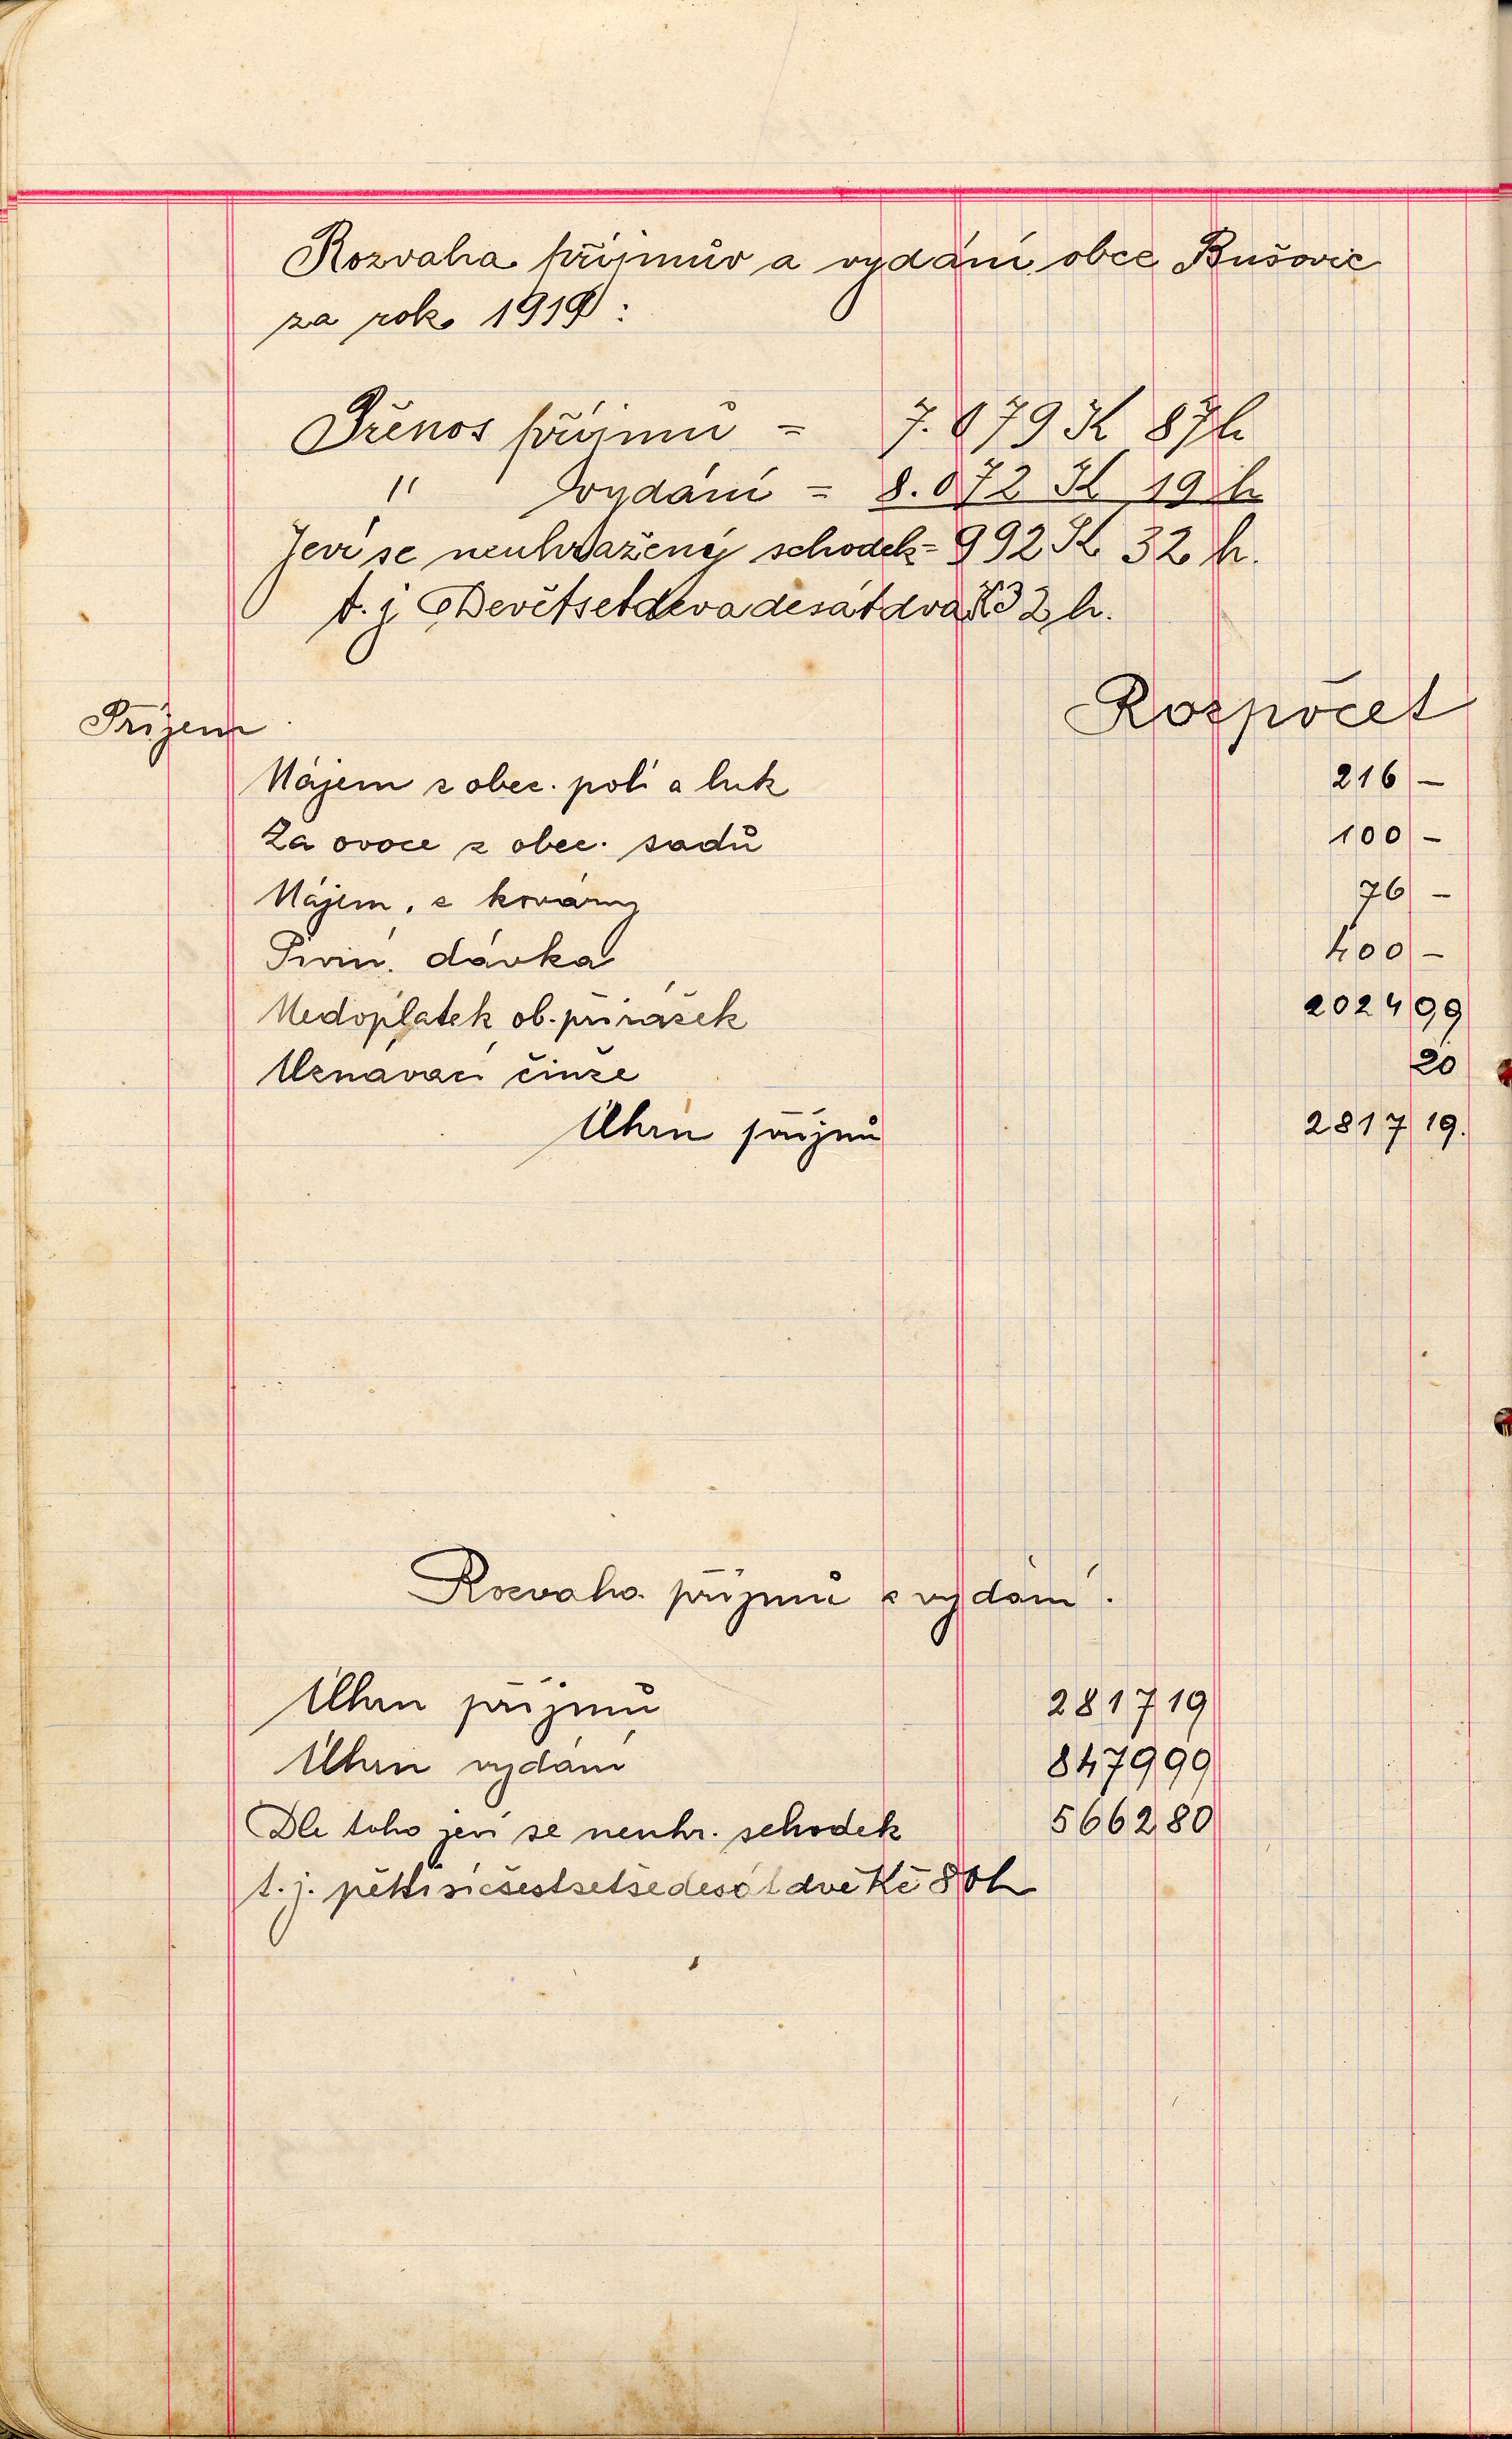 Rozvaha příjmův a vydání obce Bušovic
za rok 1919 :
Přenos příjmů = 7.079 K 87 h
" vydání = 8.072 K 19 h
Jeví se neuhražený schodek = 992 K 32 h.
t. j. Devětsetdevadesátdva K 32 h.
Rozpočet
Příjem
Nájem z obec. polí a luk 216 –
Za ovoce z obec. sadů 100 –
Nájem. z kovárny 76 –
Pivní. dávka 400 –
Nedoplatek ob. přirážek 2024 99
Uznávací činže 20
Úhrn příjmů 2817 19.
Rozvaha příjmů a vydání.
Úhrn příjmů 2817 19
Úhrn vydání 8479 99
Dle toho jeví se neuhr. schodek 5662 80
t. j. pěttisícšestsetšedesátdvě Kč 80 h